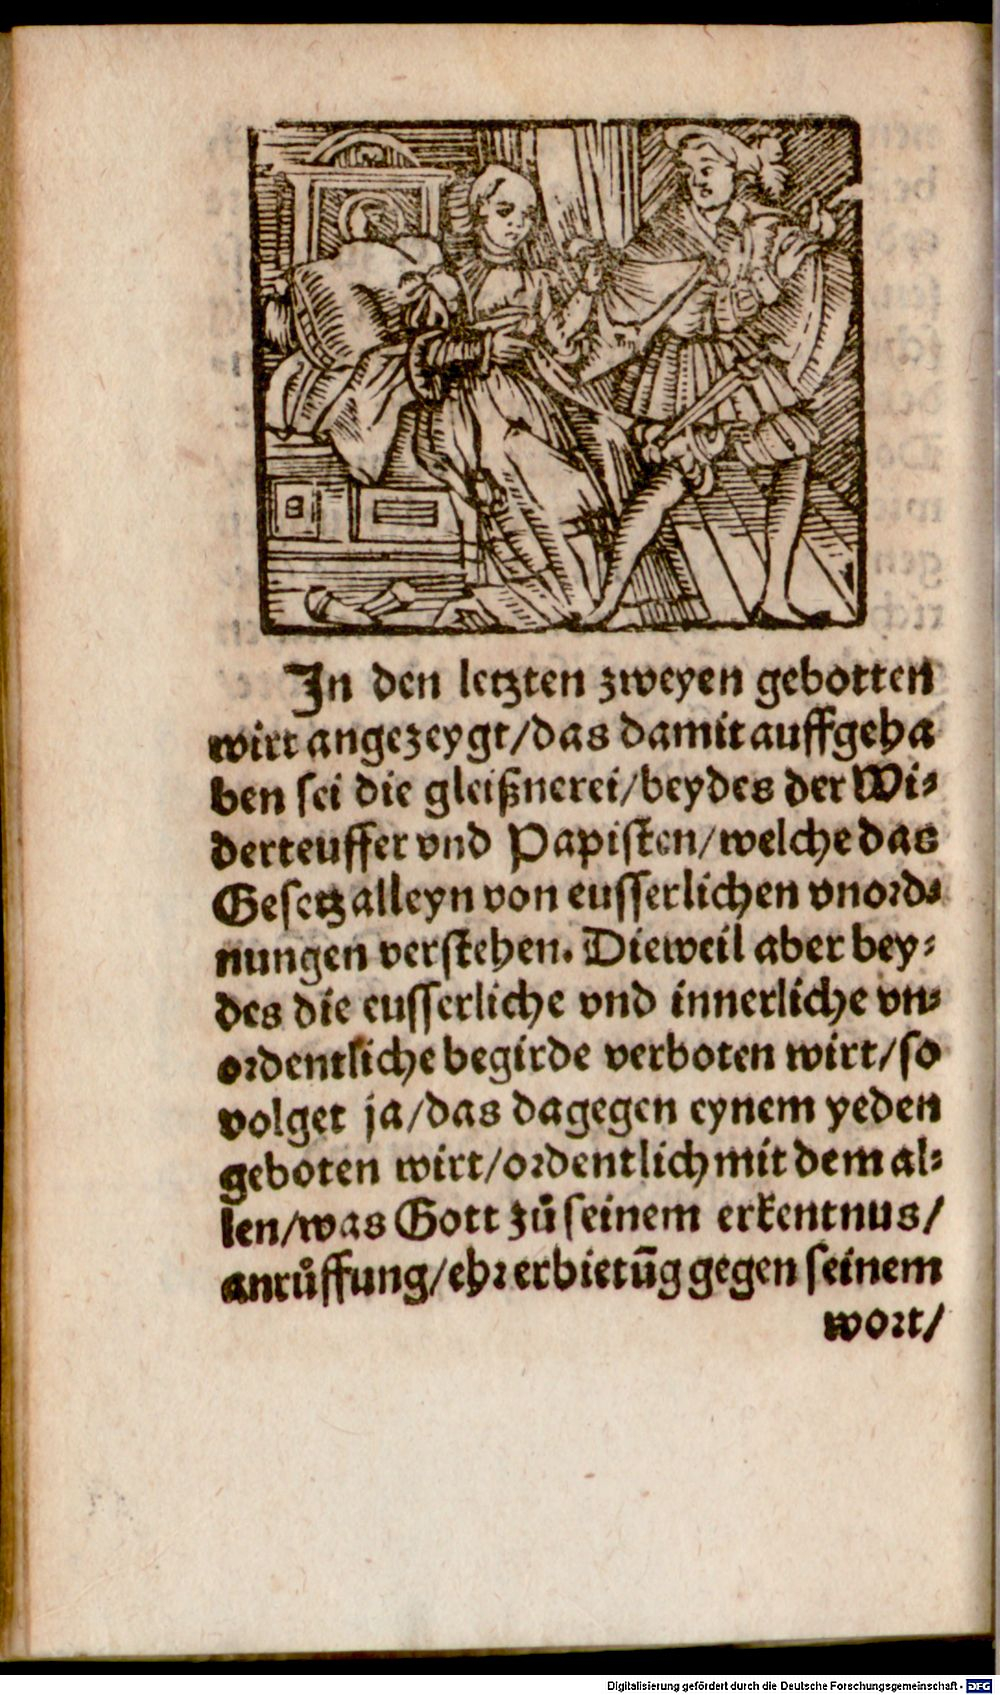 In den letzten zweyen gebotten
wirt angezeygt/das damit auffgeha
ben sei die gleißnerei/beydes der Wi⸗
derteuffer vnd Papisten/welche das
Gesetz alleyn von eusserlichen vnord⸗
nungen verstehen. Dieweil aber bey⸗
des die eusserliche vnd innerliche vn⸗
ordentliche begirde verboten wirt/so
volget ja/das dagegen eynem yeden
geboten wirt/ordentlich mit dem al⸗
len/was Gott zů seinem erkentnus/
anrůffung/ehrerbietūg gegen seinem
wort/
Digitalisierung gefördert durch die Deutsche Forschungsgemeinschaft - DFG